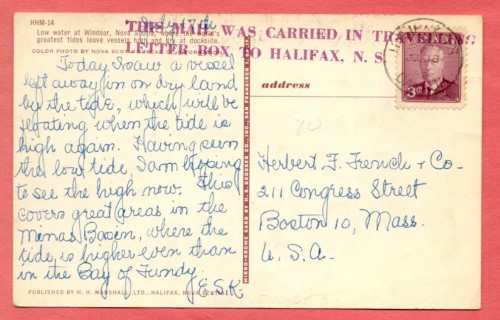 HHM-14
Low water at Windsor, Nova Scotia, where the world's
greatest tides leave vessels high and dry at dockside.
COLOR PHOTO BY NOVA SCOTIA
July 17th
THIS MAIL WAS CARRIED IN TRAVELLING
LETTER BOX, TO HALIFAX, N. S.
Today I saw a vessel
left away in on dry land
by the tide, which will be
floating when the tide is
high again. Having seen
the low tide, I am hoping
to see the high now. This
covers great areas in the
Minas Basen, where the
tide is higher even than
in the Bay of Fundy.
J.E.S.K.
PUBLISHED BY H. H. MARSHALL, LTD., HALIFAX, NOVA SCOTIA
MIRRO-KROME CARD BY H. S. CROCKER CO., INC., SAN FRANCISCO
address
3
Herbert F. French & Co-
211 Congress Street
Boston 10, Mass.
U.S.A.